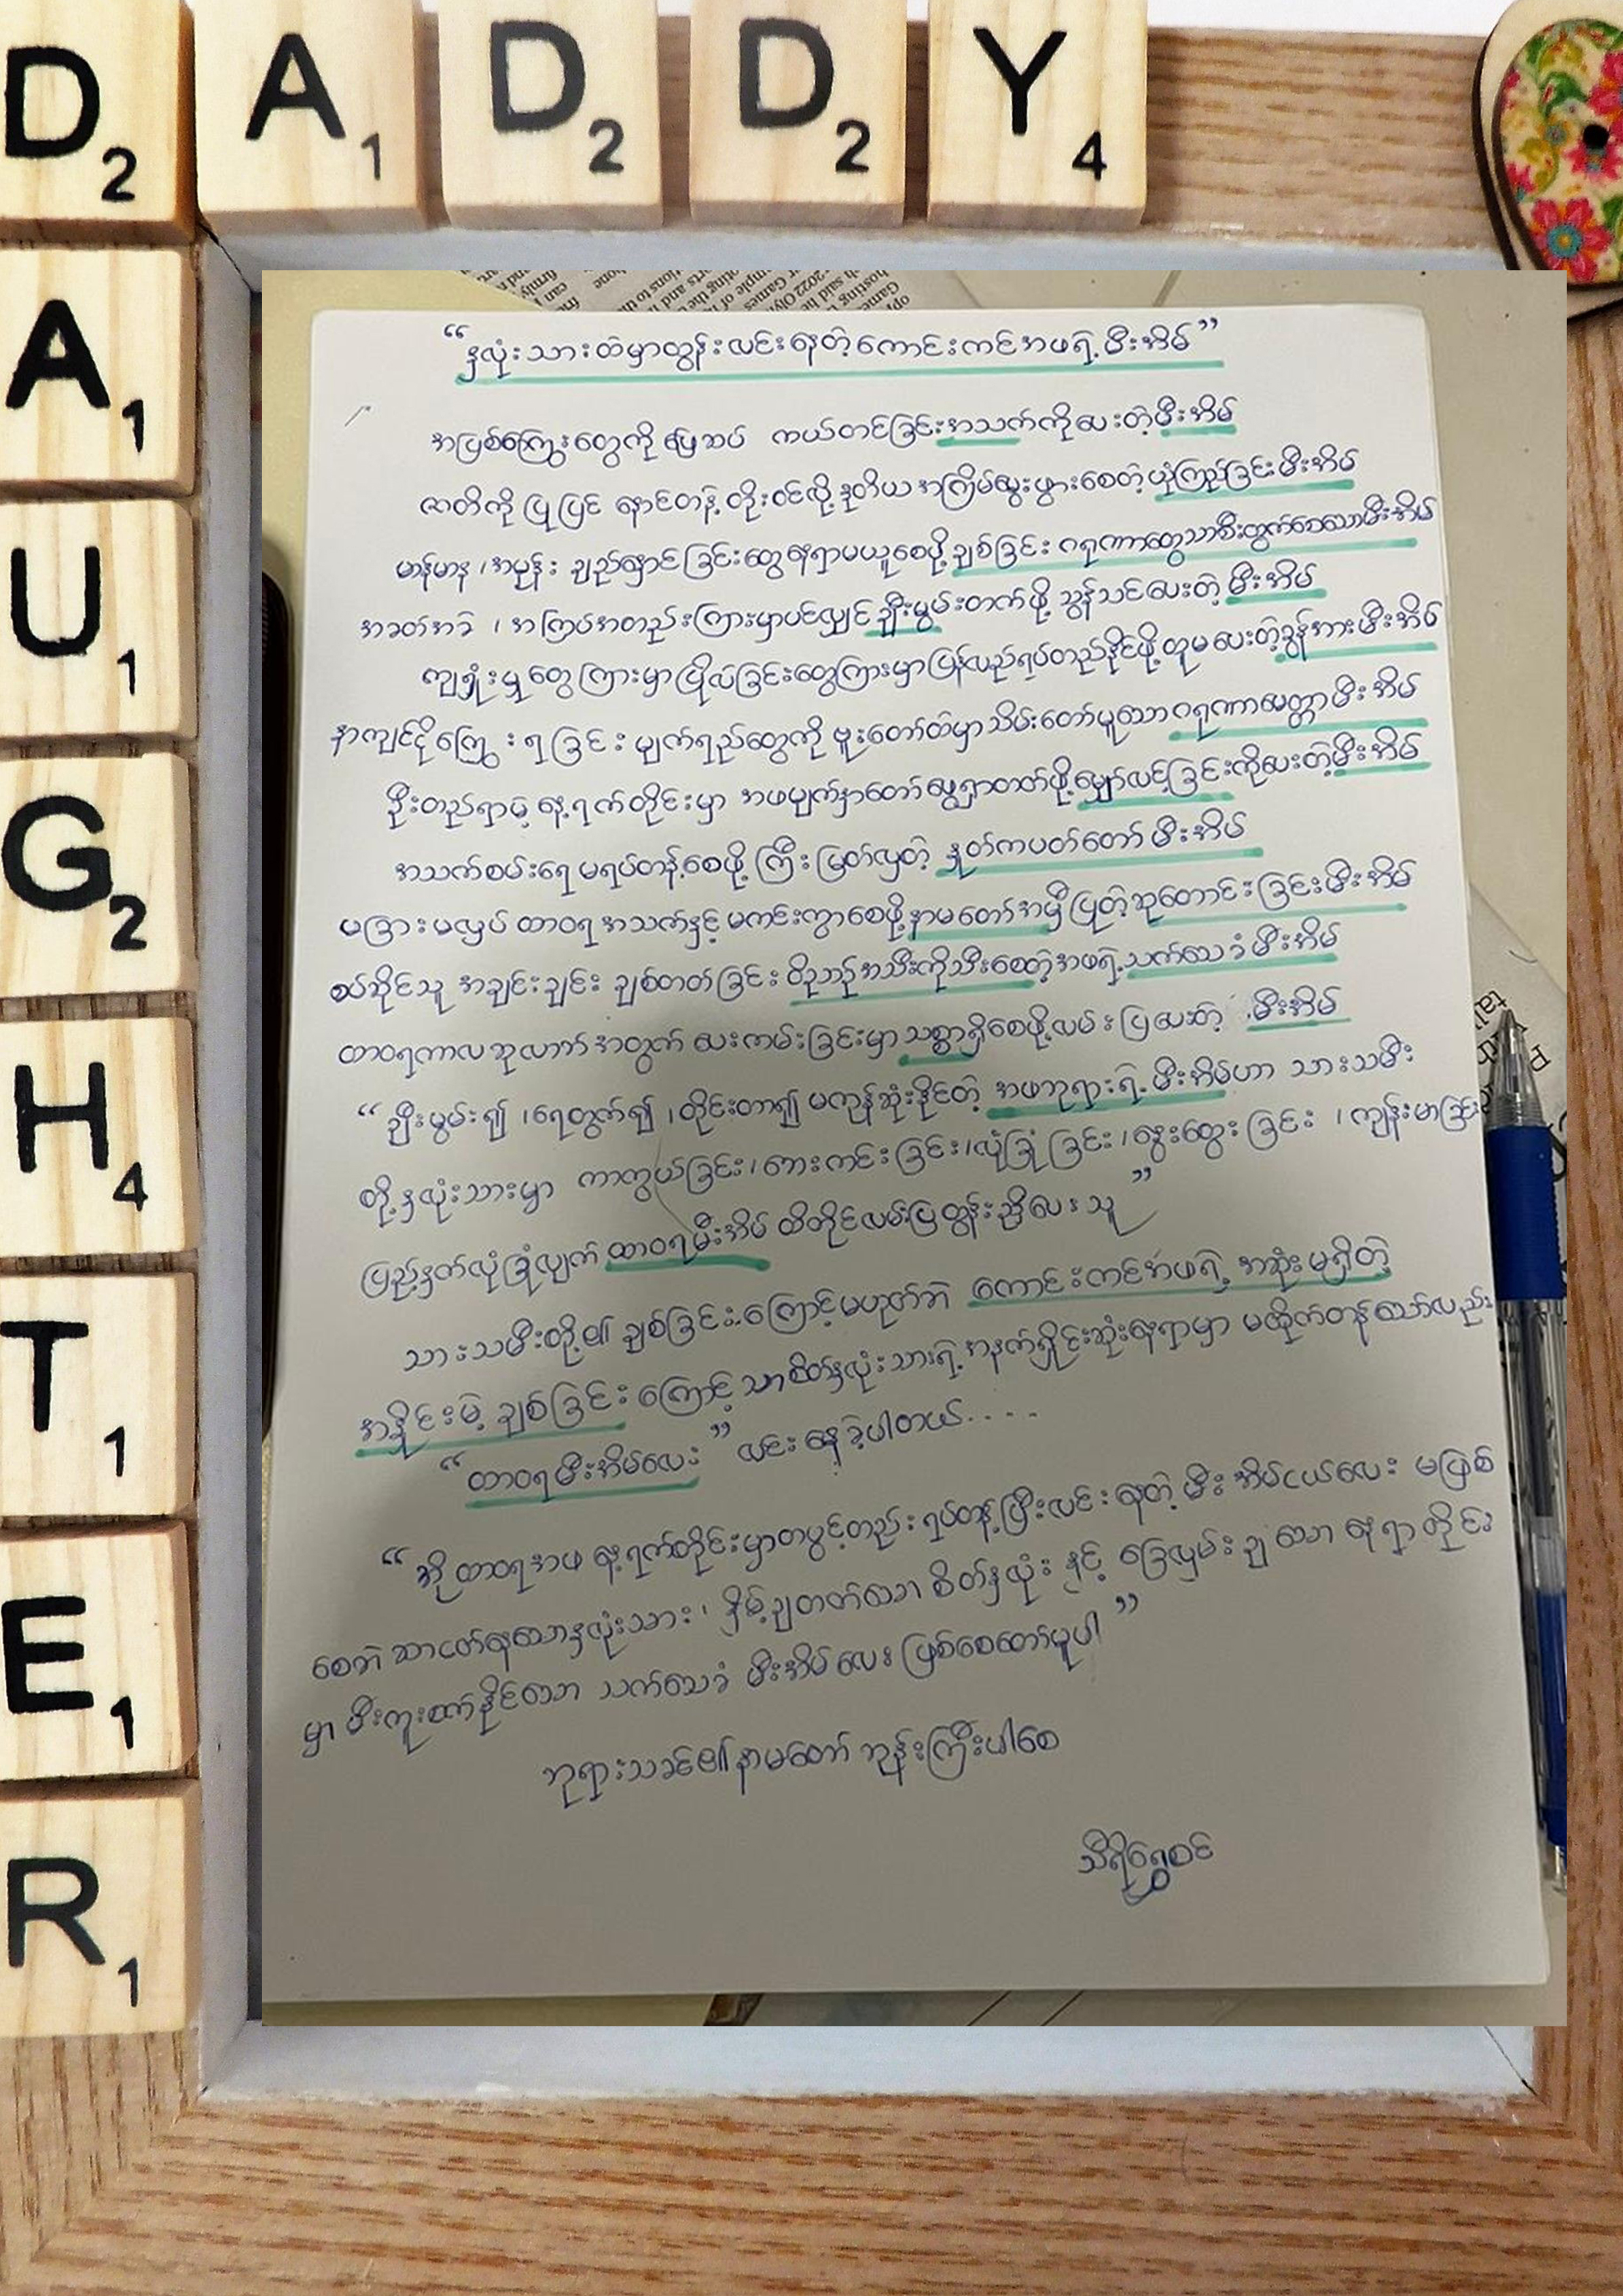 DADDY
DAUGHTER
“နှလုံးသားထဲမှာထွန်းလင်းနေတဲ့ကောင်းကင်အဖရဲ့မီးအိမ်”
အပြစ်ကြွေးတွေကို ပြေဆပ် ကယ်တင်ခြင်းအသက်ကိုပေးတဲ့မီးအိမ်
ဇာတိကို ပြုပြင် နောင်တနဲ့ တိုးဝင်လို့ ဒုတိယအကြိမ်မွေးဖွားစေတဲ့ ယုံကြည်ခြင်းမီးအိမ်
မာန်မာန၊ အမုန်း ချည်နှောင်ခြင်းတွေနေရာမယူစေဖို့ ချစ်ခြင်း ဂရုဏာတွေသာစီးထွက်စေသောမီးအိမ်
အခတ်အခဲ ၊ အကြပ်အတည်းကြားမှာပင်လျှင် ချီးမွမ်းတက်ဖို့ သွန်သင်ပေးတဲ့ မီးအိမ်
ကျရှုံးမှုတွေကြားမှာ ပြိုလဲခြင်းတွေကြားမှာ ပြန်လည်ရပ်တည်နိုင်ဖို့ ထူမပေးတဲ့ခွန်အားမီးအိမ်
နာကျင်ငိုကြွေးရခြင်း မျက်ရည်တွေကို ဗူးတော်ထဲမှာ သိမ်းတော်မူသော ဂရုဏာမေတ္တာမီးအိမ်
ဦးတည်ရာမဲ့ နေ့ရက်တိုင်းမှာ အဖမျက်နှာတော်မွေ့ရှာတတ်ဖို့ မျှော်လင့်ခြင်းကိုပေးတဲ့မီးအိမ်
အသက်စမ်းရေ မရပ်တန့်စေဖို့ ကြီးမြတ်လှတဲ့ နှုတ်ကပတ်တော် မီးအိမ်
မခြားမလှပ် ထာဝရအသက်နှင့် မကင်းကွာစေဖို့ နာမတော်အမှီပြုတဲ့ ဆုတောင်းခြင်းမီးအိမ်
စပ်ဆိုင်သူ အချင်းချင်း ချစ်တတ်ခြင်း ဝိညာဉ်အသီးကိုသီးစေတဲ့အဖရဲ့ သက်သေခံမီးအိမ်
ထာဝရကာလဆုလာဘ်အတွက် ပေးကမ်းခြင်းမှာ သစ္စာရှိစေဖို့လမ်းပြပေးတဲ့ မီးအိမ်
“ ချီးမွမ်း၍ ၊ ရေတွက်၍ ၊ တိုင်းတာ၍ မကုန်ဆုံးနိုင်တဲ့ အဖဘုရားရဲ့ မီးအိမ်ဟာ သားသမီး
တို့နှလုံးသားမှာ ကာကွယ်ခြင်း၊ ဘေးကင်းခြင်း၊ လုံခြုံခြင်း၊ နွေးထွေးခြင်း ၊ ကျန်းမာခြင်း
ပြည့်နှက်လုံခြုံလျက် ထာဝရမီးအိမ် ထိတိုင်လမ်းပြထွန်းညှိပေးသူ ”
သားသမီးတို့၏ ချစ်ခြင်းကြောင့်မဟုတ်ဘဲ ကောင်းကင်အဖရဲ့ အဆုံးမရှိတဲ့
အနှိုင်းမဲ့ ချစ်ခြင်း ကြောင့်သာ စိတ်နှလုံးသားရဲ့ အနက်ရှိုင်းဆုံးနေရာမှာ မထိုက်တန်သော်လည်း
“ ထာဝရမီးအိမ်လေး ” လင်းနေခဲ့ပါတယ်....
“ အို ထာဝရအဖ နေ့ရက်တိုင်းမှာတပွင့်တည်း ရပ်တန့်ပြီးလင်းနေတဲ့ မီးအိမ်ငယ်လေး မဖြစ်
စေဘဲ ဆာငတ်နေသောနှလုံးသား၊ နှိမ့်ချတတ်သော စိတ်နှလုံး နှင့် ခြေလှမ်းချသော နေရာတိုင်း
မှာ မီးကူးစက်နိုင်သော သက်သေခံ မီးအိမ်လေး ဖြစ်စေတော်မူပါ ”
ဘုရားသခင်၏နာမတော် ဘုန်းကြီးပါစေ
သီရိရွှေစင်